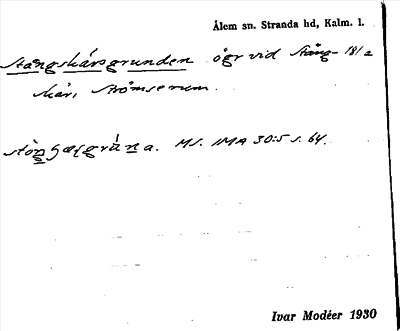 Ålem sn. Stranda hd, Kalm. l.
Stångskärsgrunden ögr vid Stång- 181a
skär, Strömserum.
MS. IMA 30:5 s. 64.
Ivar Modéer 1930